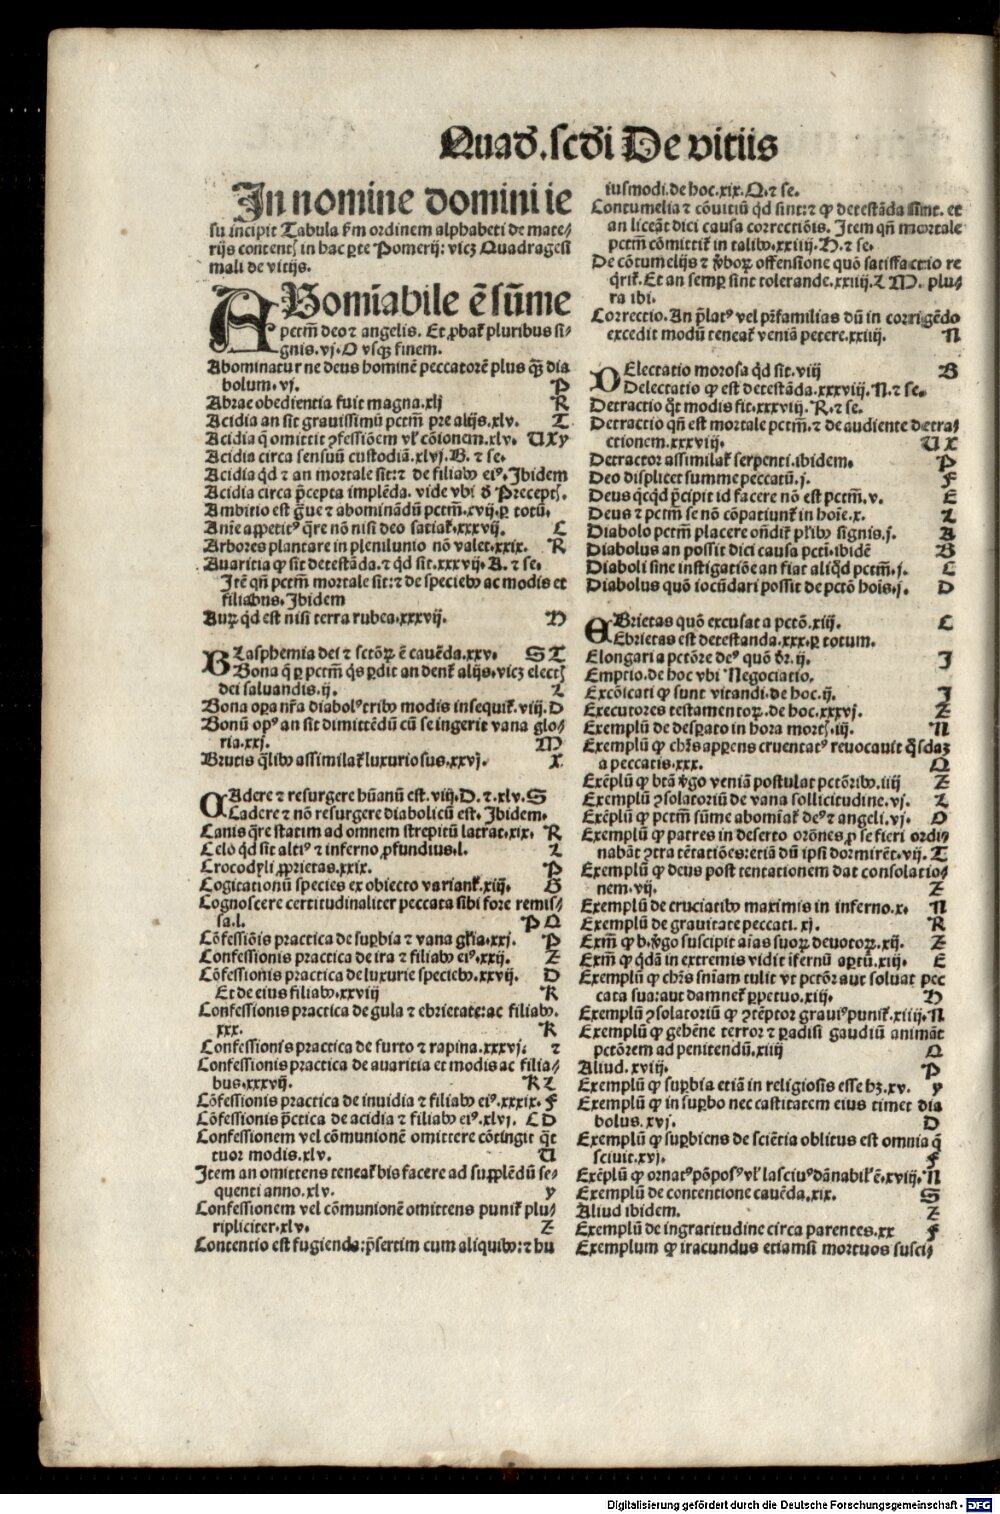 Quad. scd̄i De vitiis
In nomine domini ie
su incipit Tabula scd̄m ordinem alphabeti de mate/
rijs content in hac ꝑte Pomerij: vicꝫ Quadragesi
mali de vitijs.
ABomīabile ē sūme
pctm̄ deo ⁊ angelis. Et ꝓbat pluribus si-
gnis.vj.O vsqꝫ finem.
Abominatur ne deus hominē peccatorē plus q̄ꝫ dia
bolum.vj. P
Abrae obedientia fuit magna.xlj R
Acidia an sit grauissimū pctm̄ pre alijs.xlv. T
Acidia q̄ omittit ꝯfessiōem vl' cōionem.xlv. U X y
Acidia circa sensuū custodiā.xlvj.B. ⁊ se.
Acidia qd ⁊ an mortale sit: ⁊ de filiabꝰ eiꝰ. Ibidem
Acidia circa p̄cepta implēda. vide vbi d̄ Precept.
Ambitio est g̈ue ⁊ abominādū pctm̄.xvij.ꝑ totū.
Anīe appetitꝰ q̄re nō nisi deo satiat.xxxvij. C
Arbores plantare in plenilunio nō valet.xxix. R
Auaritia ꝙ sit detestāda.⁊ qd sit.xxxvij.A. ⁊ se.
Itē qn̄ pctm̄ mortale sit: ⁊ de speciebꝰ ac modis et
filiabus. Ibidem
Auꝝ qd est nisi terra rubea.xxxvij. H
BLasphemia dei ⁊ sctōꝝ ē cauēda.xxv. S T
Bona q̄ ꝑ pctm̄ q̄s ꝑdit an dent alijs. vicꝫ elect
dei saluandis.ij. L
Bona oꝑa nr̄a diabolꝰ tribꝰ modis insequit.viij.D
Bonū opꝰ an sit dimittēdū cū se ingerit vana glo/
ria.xxj. M
Brutis q̄libꝰ assimilat luxuriosus.xxvj. X
CAdere ⁊ resurgere hūanū est.viij.D.⁊.xlv.S
Cadere ⁊ nō resurgere diabolicū est. Ibidem.
Canis q̄re statim ad omnem strepitū latrat.xix. R
Celo qd sit altiꝰ ⁊ inferno ꝓfundius.l. L
Crocodyli ꝓprietas.xxix. P
Cogitationū species ex obiecto variant.xiij. B
Cognoscere certitudinaliter peccata sibi fore remis/
sa.l. P Q
Cōfessiōis practica de suꝑbia ⁊ vana gl'ia.xxj. P
Confessionis practica de ira ⁊ filiabꝰ eiꝰ.xxij. Z
Cōfessionis practica de luxurie speciebꝰ.xxvij. D
Et de eius filiabꝰ.xxviij K
Confessionis practica de gula ⁊ ebrietate: ac filiabꝰ.
xxx. K
Confessionis practica de furto ⁊ rapina.xxxvj. z
Confessionis practica de auaritia et modis ac filia/
bus.xxxvij. K L
Cōfessionis practica de inuidia ⁊ filiabꝰ eiꝰ.xxxix. F
Cōfessionis p̄ctica de acidia ⁊ filiabꝰ eiꝰ.xlvj. C D
Confessionem vel cōmunionē omittere cōtingit q̄t
tuor modis.xlv. U
Item an omittens teneat bis facere ad supplēdū se/
quenti anno.xlv. y
Confessionem vel cōmunionē omittens punit plu/
ripliciter.xlv. Z
Contentio est fugienda: p̄sertim cum aliquibꝰ: ⁊ hu
iusmodi. de hoc.xix.Q. ⁊ se.
Contumelia ⁊ cōuitiū qd sint: ⁊ ꝙ detestāda sint. et
an liceāt dici causa correctiōis. Item qn̄ mortale
pctm̄ cōmittit in talibꝰ.xxiiij.H. ⁊ se.
De cōtumelijs ⁊ v̄boꝝ offensione quō satisfactio re
q̄rit. Et an semꝑ sint tolerande.xxiij.L M. plu/
ra ibi.
Correctio. An p̄latꝰ vel pr̄familias dū in corrigēdo
excedit modū teneat veniā petere.xxiiij. N
DElectatio morosa qd sit.viij B
Delectatio ꝙ est detestāda.xxxviij.N. ⁊ se.
Detractio q̄t modis fit.xxxviij.R. ⁊ se.
Detractio qn̄ est mortale pctm̄. ⁊ de audiente detra/
ctionem.xxxviij. U X
Detractor assimilat serpenti. ibidem. P
Deo displicet summe peccatū.j. F
Deus q̄cqd p̄cipit id facere nō est pctm̄.v. E
Deus ⁊ pctm̄ se nō cōpatiunt in hoīe.x. L
Diabolo pctm̄ placere ondit pl'ibꝰ signis.j. A
Diabolus an possit dici causa pcti. ibidē B
Diaboli sine instigatiōe an fiat aliqd pctm̄.j. C
Diabolus quō iocūdari possit de pctō hoīs.j. D
EBrietas quō excusat a pctō.xiij. C
Ebrietas est detestanda.xxx.ꝑ totum.
Elongari a pctōre deꝰ quō dr̄.ij. I
Emptio. de hoc vbi Negociatio.
Excōicati ꝙ sunt vitandi. de hoc.ij. I
Executores testamentoꝝ. de hoc.xxxvj. Z
Exemplū de desꝑato in hora mort.iij. N
Exemplū ꝙ chr̄s apparens cruentatꝰ reuocauit q̄sdaꝫ
a peccatis.xxx. Q
Exēplū ꝙ btā v̄go veniā postulat pctōribꝰ.iiij Z
Exemplū ꝯsolatoriū de vana sollicitudine.vj. L
Exēplū ꝙ pctm̄ sūme abomiat deꝰ ⁊ angeli.vj. O
Exemplū ꝙ patres in deserto orōnes ꝓ se fieri ordi/
nabāt ꝯtra tētatiōes: etiā dū ipsi dormirēt.vij. T
Exemplū ꝙ deus post tentationem dat consolatio/
nem.vij. Z
Exemplū de cruciatibꝰ maximis in inferno.x. N
Exemplū de grauitate peccati.xj. R
Exm̄ ꝙ b.v̄go suscipit aīas suoꝝ deuotoꝝ.xij. Z
Exm̄ ꝙ qdā in extremis vidit īfernū aꝑtū.xiij. E
Exemplū ꝙ chr̄s sniam tulit vt pctōr aut soluat pec
cata sua: aut damnet ꝑpetuo.xiij. H
Exemplū ꝯsolatoriū ꝙ ꝯtēptor grauiꝰ punit.xiiij.N
Exemplū ꝙ gehēne terror ⁊ ꝑadisi gaudiū animāt
pctōrem ad penitendū.xiiij Q
Aliud.xviij. P
Exemplū ꝙ suꝑbia etiā in religiosis esse hꝫ.xv. y
Exemplū ꝙ in suꝑbo nec castitatem eius timet dia
bolus.xvj. D
Exemplū ꝙ suꝑbiens de sciētia oblitus est omnia q̄
sciuit.xvj. F
Exēplū ꝙ ornatꝰ pōposꝰ vl' lasciuꝰ dānabil' ē.xviij.N
Exemplū de contentione cauēda.xix. S
Aliud ibidem. Z
Exemplū de ingratitudine circa parentes.xx F
Exemplum ꝙ iracundus etiamsi mortuos susci/
Digitalisierung gefördert durch die Deutsche Forschungsgemeinschaft - DFG